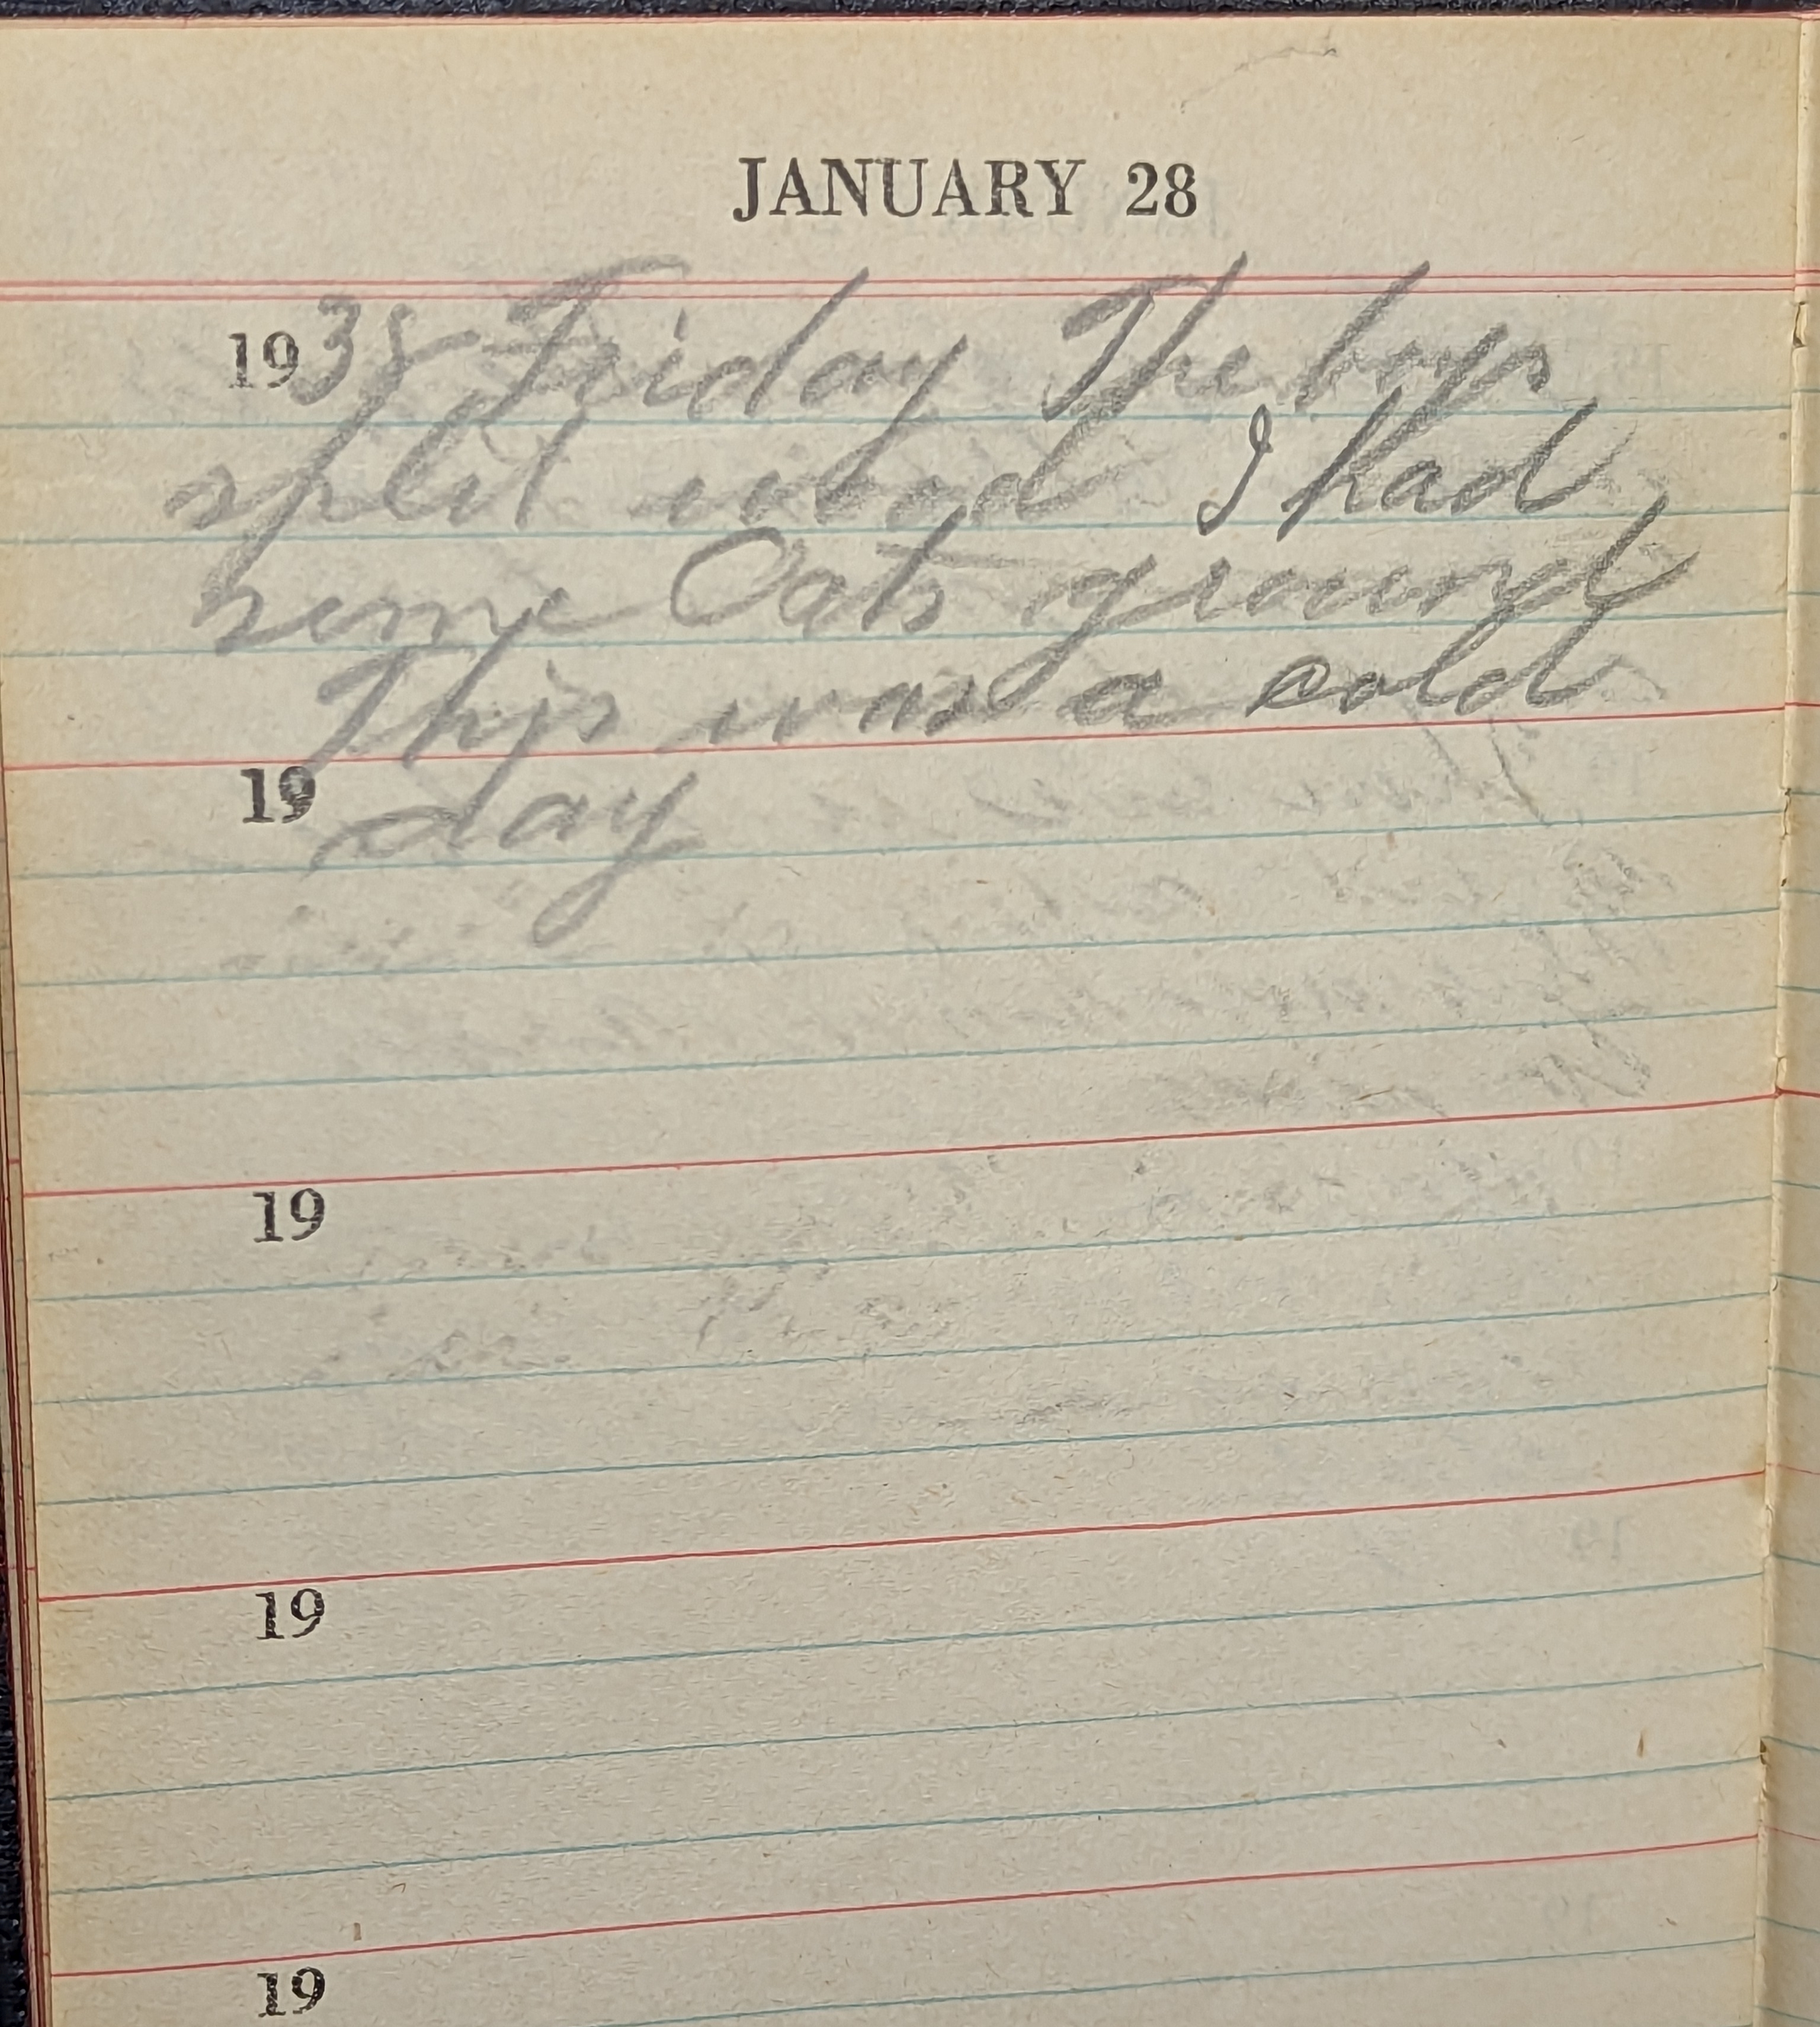 JANUARY 28
1938 Friday The boys
split wood I had
some Oats ground
This was a cold
19 day
19
19
19